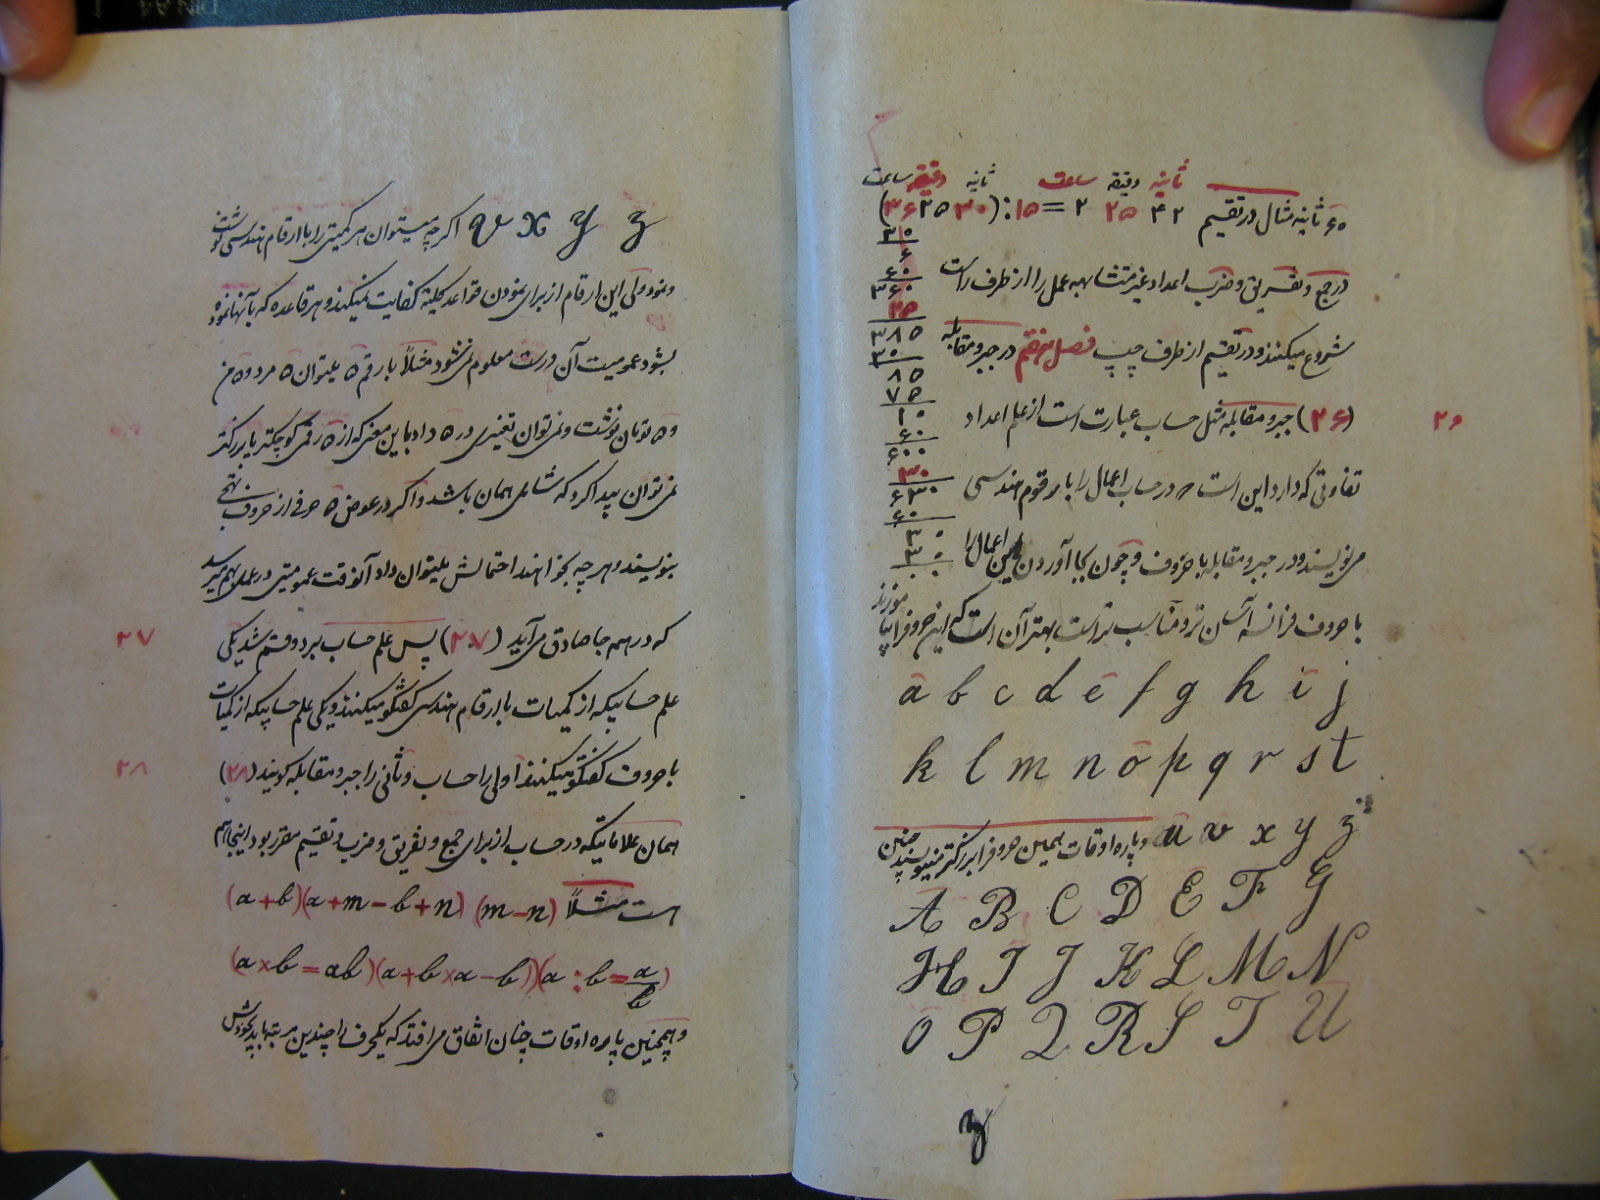 ثانیه دقیقه ساعت ثانیه دقیقه ساعت
۶۰ ثانیه مثال در تقسیم ۴۲ ۲۵ ۲ = ۱۵ : (۳۰ ۲۵ ۳۶)
۳۰
۶
۶۰
۳۶۰
۲۵
۳۸۵
۳۰
۸۵
۷۵
۱۰
۶۰
۶۰۰
۳۰
۶۳۰
۶۰
۳۰
۳۰
۰۰
در جمع و تفریق و ضرب اعداد غیر متشابهه عمل را از طرف راست
شروع میکنند و در تقسیم از طرف چپ فصل هفتم در جبر و مقابله
۲۶
(۲۶) جبر و مقابله مثل حساب عبارت است از علم اعداد
تفاوتی که دارد این است در حساب اعمال را با رقوم هندسی
مینویسند و در جبر و مقابله با حروف و چون بجا آوردن این اعمال را
با حروف فرانسه آسان تر و مناسب تر است بهتر آن است که این حروف را بیاموزند
a b c d e f g h i j
k l m n o p q r s t
u v x y z و پاره اوقات همین حروف را بزرگتر مینویسند چنین
A B C D E F G
H I J K L M N
O P Q R S T U
V X Y Z اگر چه میتوان هر کمیتی را با ارقام هندسی نوشت
و نمود ولی این ارقام از برای نمودن قواعد کلیه کفایت نمیکند و هر قاعده که با آنها نموده
بشود عمومیت آن درست معلوم نمیشود مثلاً با رقم ۵ میتوان ۵ مرد و ۵ من
و ۵ تومان نوشت و نمی توان تغییری در ۵ داد باین معنی که از ۵ رقمی کوچکتر یا بزرگتر
نمی توان پیدا کرد که شامل همان باشد و اگر در عوض ۵ حرفی از حروف تهجی
بنویسند و هر چه بخواهند احتمالش میتوان داد آنوقت عمومیتی در عمل بهم میرسد
۲۷
که در همه جا صادق می آید (۲۷) پس علم حساب بر دو قسم شد یکی
علم حسابیکه از کمیات با ارقام هندسی گفتگو میکنند و یکی علم حسابیکه از کمیات
۲۸
با حروف گفتگو میکنند اولی را حساب و ثانی را جبر و مقابله گویند (۲۸)
همان علاماتیکه در حساب از برای جمع و تفریق و ضرب و تقسیم مقرر بود اینجا هم
هست مثلاً (m-n) (a+m-b+n) (a+b)
(a×b=ab)(a+b×a-b)(a:b=a/b)
و همچنین پاره اوقات چنان اتفاق می افتد که یکحرف را چندین مرتبه باید بخودش